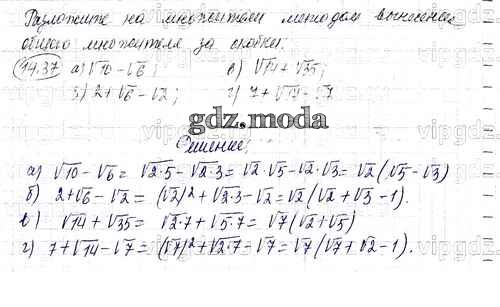 Разложите на множители методом вынесения
общего множителя за скобки:
14.37 а) √10 - √6; в) √14 + √35;
б) 2 + √6 - √2; г) 7 + √14 - √7
gdz.moda
Решение:
а) √10 - √6 = √2·5 - √2·3 = √2·√5 - √2·√3 = √2(√5 - √3)
б) 2 + √6 - √2 = (√2)² + √2·3 - √2 = √2(√2 + √3 - 1).
в) √14 + √35 = √2·7 + √5·7 = √7(√2 + √5)
г) 7 + √14 - √7 = (√7)² + √2·7 - √7 = √7(√7 + √2 - 1).